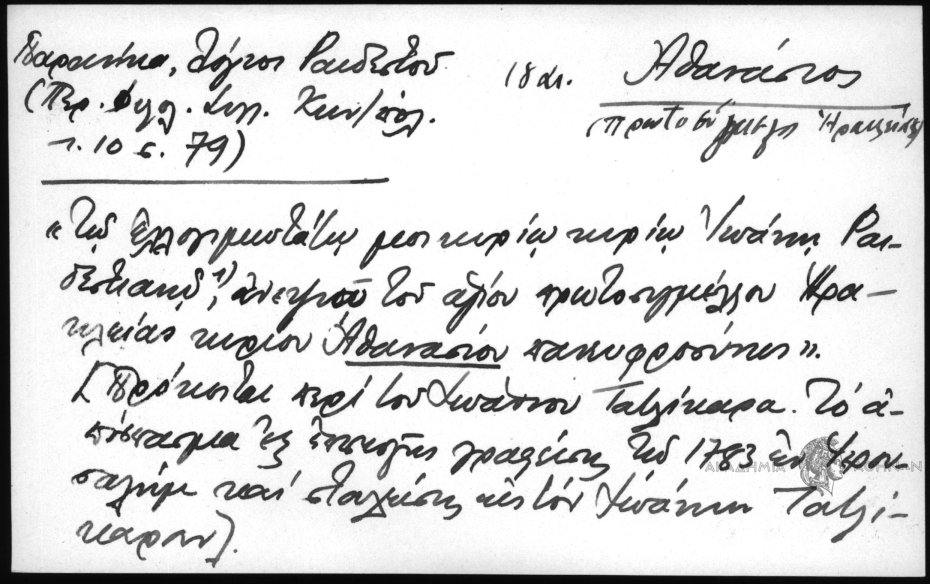 Παρανίκα, Λόγιοι Ραιδεστού
(Περ. Φιλολ. Συλλ. Κων/πόλ.
τ. 10 σ. 79)
18 αι.
Ἀθανάσιος
(πρωτοσύγγελος Ἡρακλείας)
«Τῷ ἐλλογιμωτάτῳ μοι κυρίῳ κυρίῳ Ἰωάννῃ Ραι-
δεστιανῷ 1), ἀνεψιοῦ τοῦ ἁγίου πρωτοσυγγέλλου Ἡρα-
κλείας κυρίου Ἀθανασίου πανευφροσύνως».
[Πρόκειται περὶ τοῦ Ἰωάννου Τατλίκαρα. Τὸ ἀ-
πόσπασμα ἐξ ἐπιστολῆς γραφείσης τῷ 1783 ἐν Ἱερου-
σαλὴμ καὶ σταλείσης εἰς τὸν Ἰωάννην Τατλί-
καραν].
ΑΚΑΔΗΜΙΑ ΑΘΗΝΩΝ